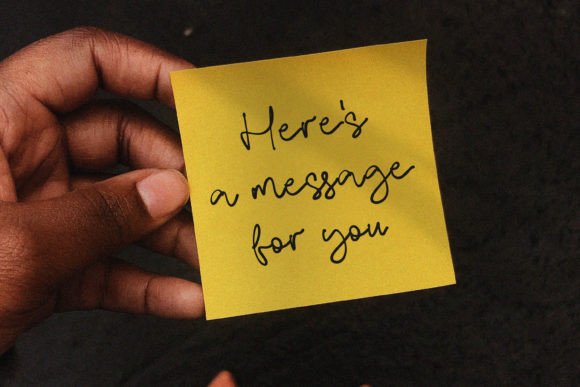 Here's
a message
for you